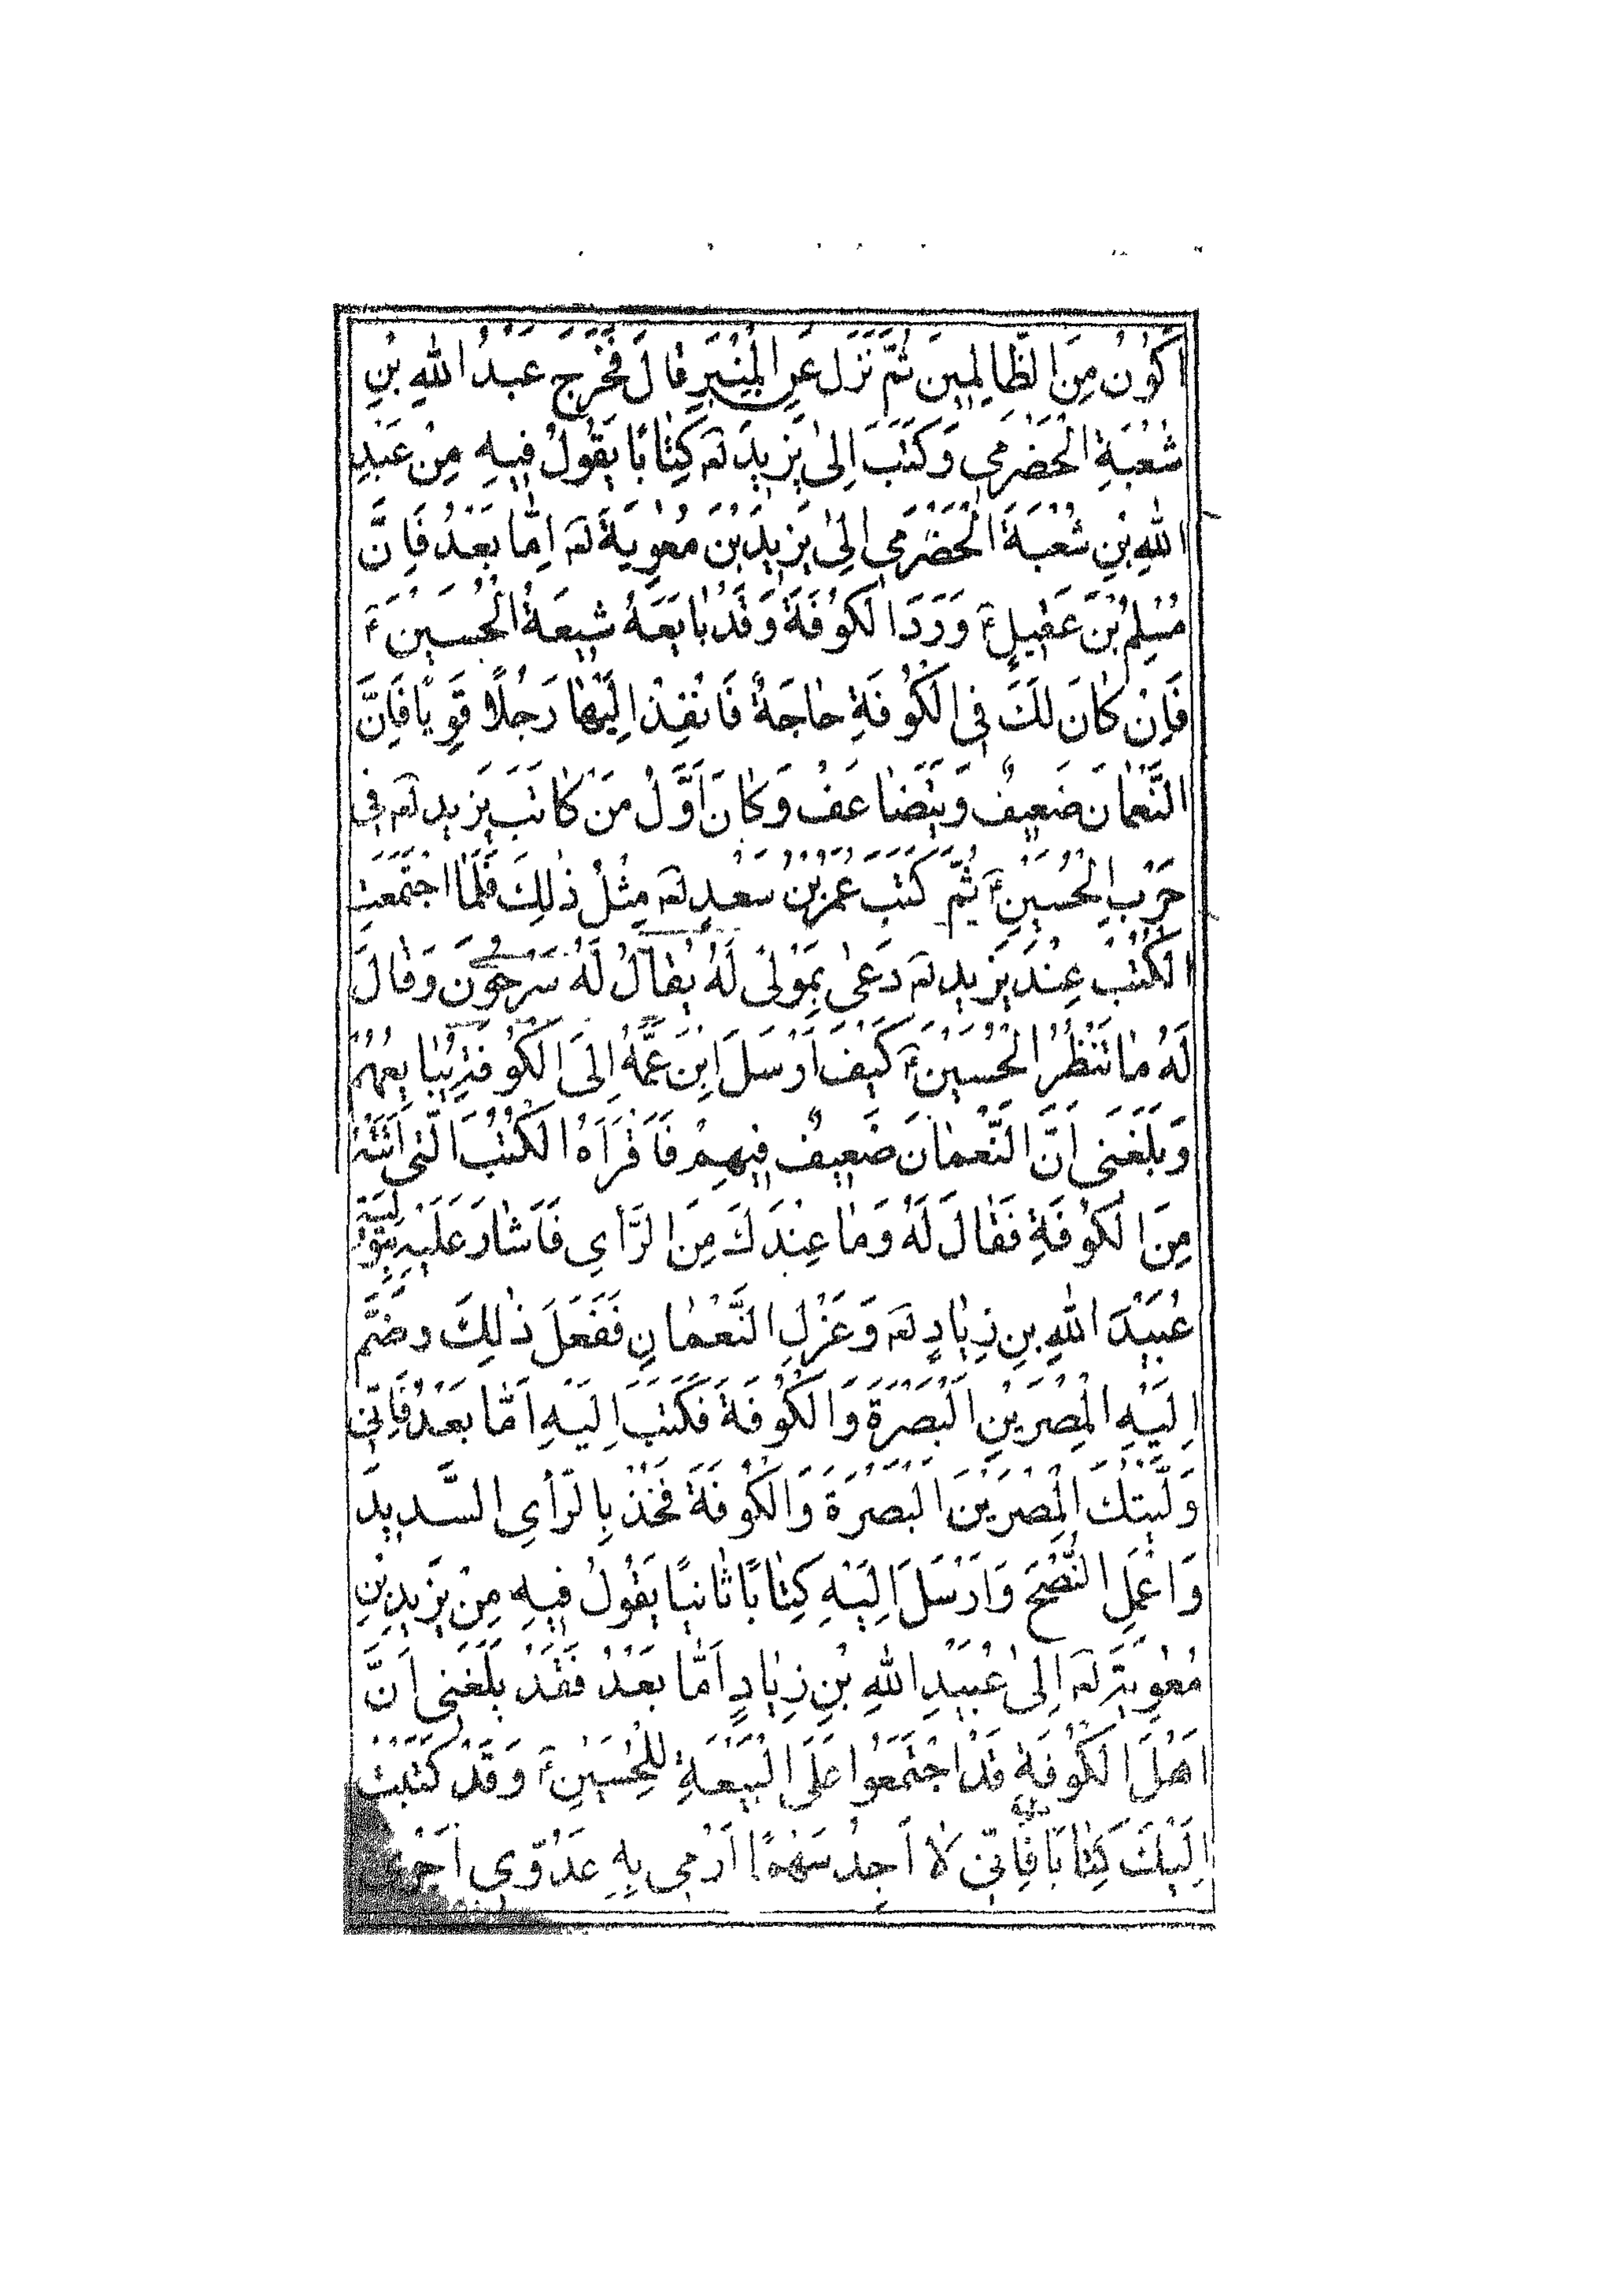 اَكُوْنُ مِنَ الظّالِمينَ ثُمَّ نَزَلَ عَنِ الْمِنْبَرِ قالَ فَخَرَجَ عَبْدُ اللهِ بْنِ
شُعْبَةِ الْحَضْرَمي وَكَتَبَ اِلىٰ يَزيدَ لعہ كِتٰابًا يَقُولُ فيهِ مِنْ عَبْدِ
اللهِ بْنِ شُعْبَةَ الْحَضْرَمي اِلىٰ يَزيدَ بْنَ مُعٰوِيةَ لعہ اَمّٰا بَعْدُ فَاِنَّ
مُسْلِمُ بْنَ عَقيلٍ ؑ وَرَدَ الكُوْفَةَ وَقَدْ بٰايَعَهُ شيعَةُ الْحُسَيْنِ ؑ
فَاِنْ كٰانَ لَكَ فِى الْكُوْفَةِ حٰاجَةٌ فَانْفِذْ اِلَيْهٰا رَجُلًا قَوِيًا فَاِنَّ
النُّعْمٰانَ ضَعيفٌ وَيَتَضٰاعَفُ وَكٰانَ اَوَّلُ مَنْ كٰاتَبَ يَزيدَ لعہ فِى
حَرْبِ الْحُسَيْنِ ؑ ثُمَّ كَتَبَ عُمَرُ بْنُ سَعْدٍ لعہ مِثْلُ ذٰلِكَ فَلَمَّا اجْتَمَعَتِ
الْكُتُبُ عِنْدَ يَزيدَ لعہ دَعىٰ بِمَوْلىً لَهُ يُقٰالُ لَهُ سَرْحُوْن وَقٰالَ
لَهُ مٰا تَنْظُرُ الْحُسَيْنَ ؑ كَيْفَ اَرْسَلَ ابْنَ عَمِّهِ اِلَى الْكُوفَةِ يُبٰايِعُهُمْ
وَبَلَغَنى اَنَّ النُّعْمٰانَ ضَعيفٌ فيهِمْ فَاَقْرَاَهُ الْكُتُبَ الَّتى اَتَتْهُ
مِنَ الْكُوْفَةِ فَقٰالَ لَهُ وَمٰا عِنْدَكَ مِنَ الرَّأىِ فَاَشٰارَ عَلَيْهِ بِتَوْلِيَةِ
عُبَيْدَ اللهِ بْنِ زِيٰادٍ لعہ وَعَزْلِ النُّعْمٰانِ فَفَعَلَ ذٰلِكَ وضَمَّ
اِلَيْهِ الْمِصْرَيْنِ الْبَصْرَةَ وَالْكُوْفَةَ فَكَتَبَ اِلَيْهِ اَمّٰا بَعْدُ فَاِنّى
وَلَّيْتُكَ الْمِصْرَيْنَ الْبَصْرَةَ وَالْكُوْفَةَ فَخُذْ بِالرَّأىِ السَّديدَ
وَاعْمَلِ النُّصْحَ وَاَرْسَلَ اِلَيْهِ كِتٰابًا ثٰانيًا يَقُولُ فيهِ مِنْ يَزيدِ بْنِ
مُعٰوِيَةَ لعہ اِلىٰ عُبَيْدِ اللهِ بْنِ زِيٰادٍ اَمّٰا بَعْدُ فَقَدْ بَلَغَنى اَنَّ
اَهْلَ الْكُوْفَةِ قَدْ اجْتَمَعُوا عَلَى الْبَيْعَةِ لِلْحُسَيْنِ ؑ وَقَدْ كَتَبْتُ
اِلَيْكَ كِتٰابًا فَاِنّى لٰا اَجِدُ سَهْمًا اَرْمى بِهِ عَدُوّى